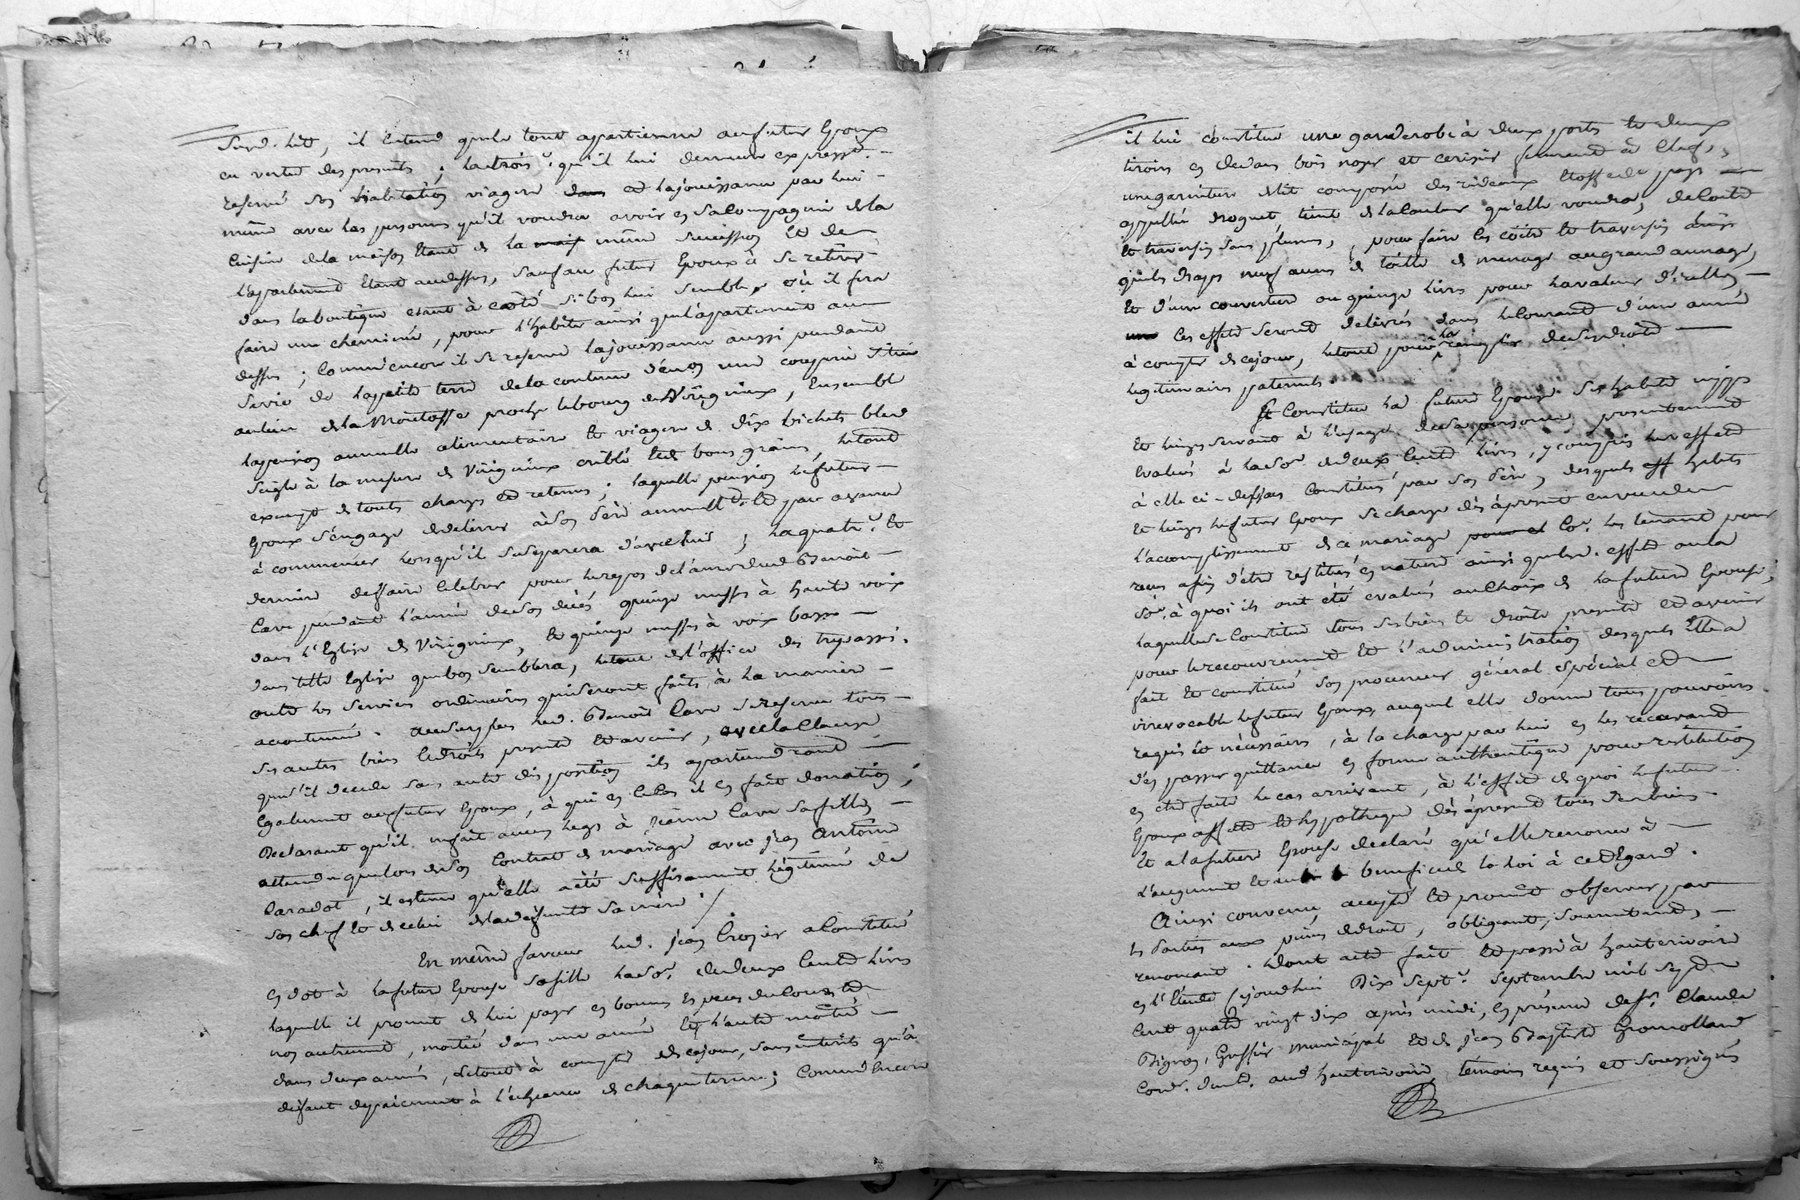 Susd. lieu, il entend que le tout appartienne au futur Epoux
en vertu des presents; la trois.e qu'il lui demeure expressé.
reservé son habitation viagere et la jouissance par lui
même avec les personnes qu'il voudra avoir en sa compagnie de la
Cuisine de la maison Etant de la même succession Et de
l'apartement Etant audessus, sauf au futur Epoux à se retirer
dans la boutique etant à coté si bon lui semble, où il fera
faire une cheminée, pour l'habiter ainsi que l'apartement au
dessus; Comm'encore il se reserve la jouissance aussi pendant
sa vie de la petite terre de la contenue d'environ une coupée située
au lieu de la Moutosse proche le bourg de Virigneux, Ensemble
la pension annuelle alimentaire et viagere de dix bichets bled
seigle à la mesure de Virigneux criblé Et de bons grains, le tout
exempt de touts charges et retenues; laquelle pension le futur
Epoux s'engage de delivrer à son Pere annuell.t Et par avance
à commencer lorsqu'il se separera d'avec lui; la quatr.e et
derniere de faire celebrer pour le repos de l'ame dud. Benoit
Cave pendant l'année de son décés quinze messes à haute voix
dans l'Eglise de Virigneux, et quinze messes à voix basse
dans telle Eglise que bon semblera, le tout de l'office des trepassés
outre les services ordinaires qui seront faits à la maniere
acoutumée. Au surplus led. Benoit Cave se reserve tous
ses autres biens Et droits presents et avenir, avec la clause
que s'il decede sans autre disposition ils appartiendront
Egalement au futur Epoux, à qui en ce cas il en fait donnation;
Declarant qu'il ne fait aucun legs à Jeanne Cave sa fille,
attendu que lors de son Contrat de mariage avec Jean Antoine
Caradot, il estime qu'elle a été suffisament légitimée de
son chef et de celui de la defunte sa mère./
En même faveur led. Jean Crozier a Constitué
en dot à la future Epouse sa fille la so.e de deux Cents livres
laquelle il promet de lui payer en bonnes Especes du Cours et
non autrement, moitié dans une année Et l'autre moitié
dans deux années, le tout à compter de ce jour, sans interêts qu'à
defaut de paiement à l'echeance de chaque terme; Comm'Encore
il lui constitue une garderobe à deux portes et deux
tiroirs en devant bois noyer et cerisier fermant à Clef,
une garniture de lit composée des rideaux Etoffe de pays
appellée droguet teint de la couleur qu'elle voudra, de Coite
et traversin sans plumes, pour faire les coite et traversin ainsi
que les draps neuf aunes de toille de menage au grand aunage,
Et d'une couverture ou quinze livres pour la valeur d'icelle,
les effets seront delivrés dans le Courant d'une année
à compter de ce jour, le tout pour la remplir de ses droits
legitimaires paternels.
Se Constitue lad. future Epouse ses habits nippes
Et linges servant à l'usage de sa personne presentement
Evalués à la so.e de deux Cents livres, y compris les effets
à elle ci-dessus Constitués par son Père, desquels habits
et linges le futur Epoux se charge dès à present en vue de
l'accomplissement de ce mariage co.e les tenant pour
reçus afin d'etre restitués en nature ainsi que lesd. effets ou la
so.e à quoi ils ont été evalués au choix de la future Epouse;
laquelle se Constitue tous ses biens et droits presents et avenir
pour le recouvrement Et l'administration desquels Elle a
fait et constitué son procureur général special et
irrevocable le futur Epoux, auquel elle donne tous pouvoirs
requis et nécessaires, à la charge par lui en les recevant
d'en passer quittance en forme authentique pour restitution
en etre faite le cas arrivant, à l'effet de quoi le futur
Epoux affecte et hypotheque dès àpresent tous ses biens
Et a la future Epouse declaré qu'elle renonce à
l'augment et autre benefice de la loi à cet Egard.
Ainsi convenu, accepté et promet observer par
les Parties aux peines de droit, obligeant, soumettant,
renonçant. Dont acte fait et passé à hauterivoire
en l'Etude cejourd'hui Dix Sept.e Septembre mil Sept
cent quatre vingt dix après midi, En présence de s.r Claude
Pignon, Greffier municipal et de Jean Baptiste Gromolland
Cord.r dem.t aud. hauterivoire, temoins requis et soussignés